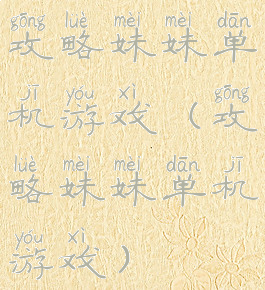 gōng lüè mèi mèi dān
攻略妹妹单
jī yóu xì gōng
机游戏（攻
lüè mèi mèi dān jī
略妹妹单机
yóu xì
游戏）